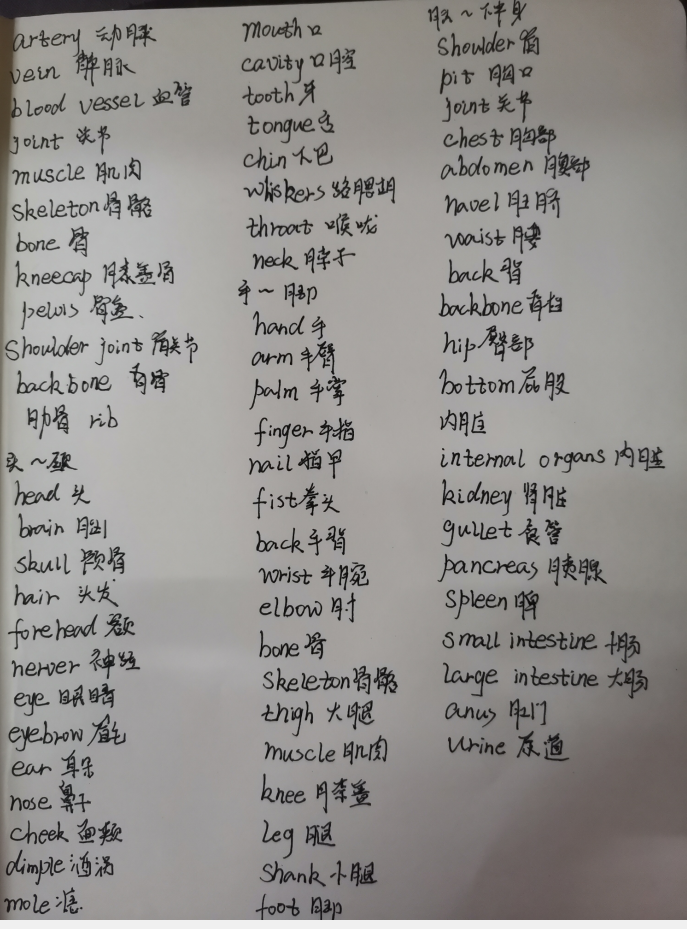 artery 动脉
vein 静脉
blood vessel 血管
joint 关节
muscle 肌肉
skeleton 骨骼
bone 骨
kneecap 膝盖骨
pelvis 骨盆.
shoulder joint 肩关节
backbone 脊骨
肋骨 rib
头~颈
head 头
brain 脑
skull 颅骨
hair 头发
forehead 额
nerver 神经
eye 眼睛
eyebrow 眉毛
ear 耳朵
nose 鼻子
cheek 面颊
dimple 酒涡
mole 痣
mouth 口
cavity 口腔
tooth 牙
tongue 舌
chin 下巴
whiskers 络腮胡
throat 喉咙
neck 脖子
手~脚
hand 手
arm 手臂
palm 手掌
finger 手指
nail 指甲
fist 拳头
back 手背
wrist 手腕
elbow 肘
bone 骨
skeleton 骨骼
thigh 大腿
muscle 肌肉
knee 膝盖
leg 腿
shank 小腿
foot 脚
~下半身
shoulder 肩
pit 胸口
joint 关节
chest 胸部
abdomen 腹部
navel 肚脐
waist 腰
back 背
backbone 脊柱
hip 臀部
bottom 屁股
内脏
internal organs 内脏
kidney 肾脏
gullet 食管
pancreas 胰腺
spleen 脾
small intestine 小肠
large intestine 大肠
anus 肛门
urine 尿道